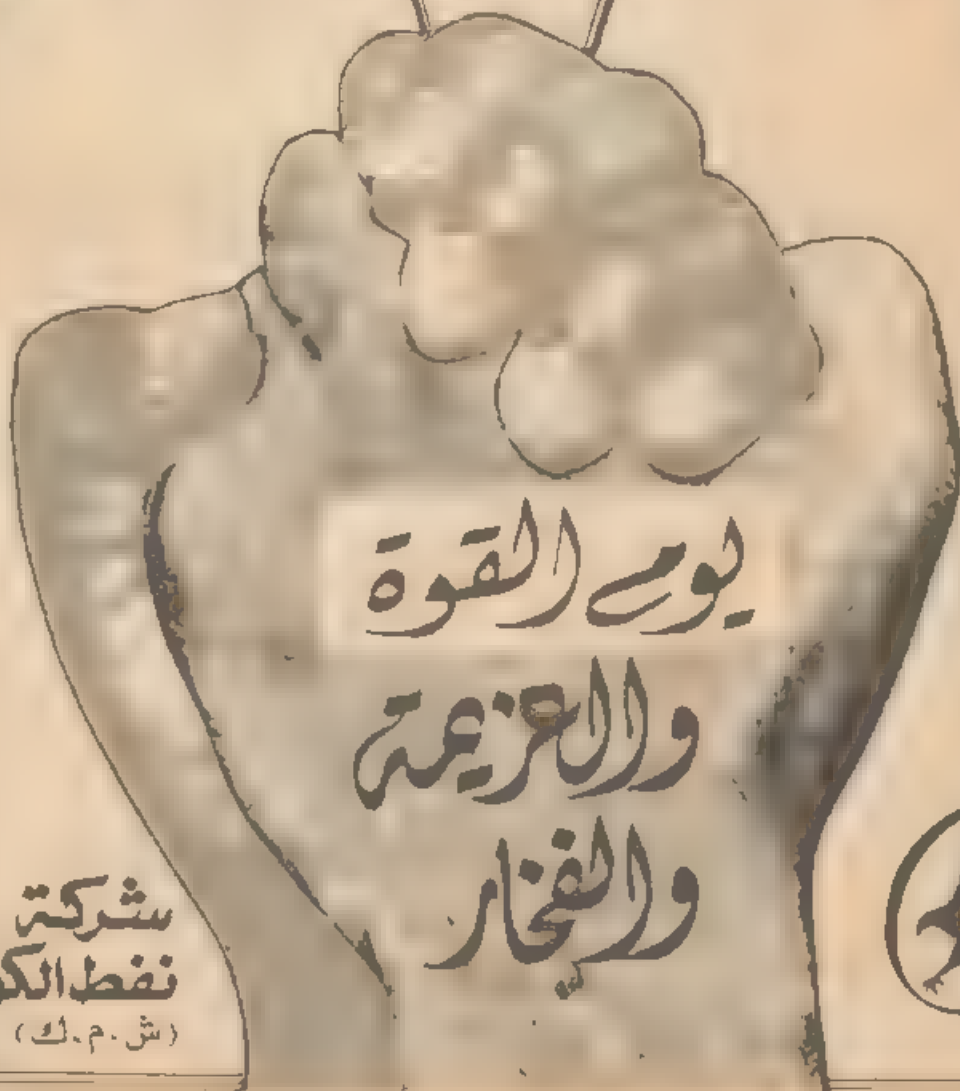 يوم القوة
والعزيمة
والفخار
شركة
نفط
(ش.م.ك)